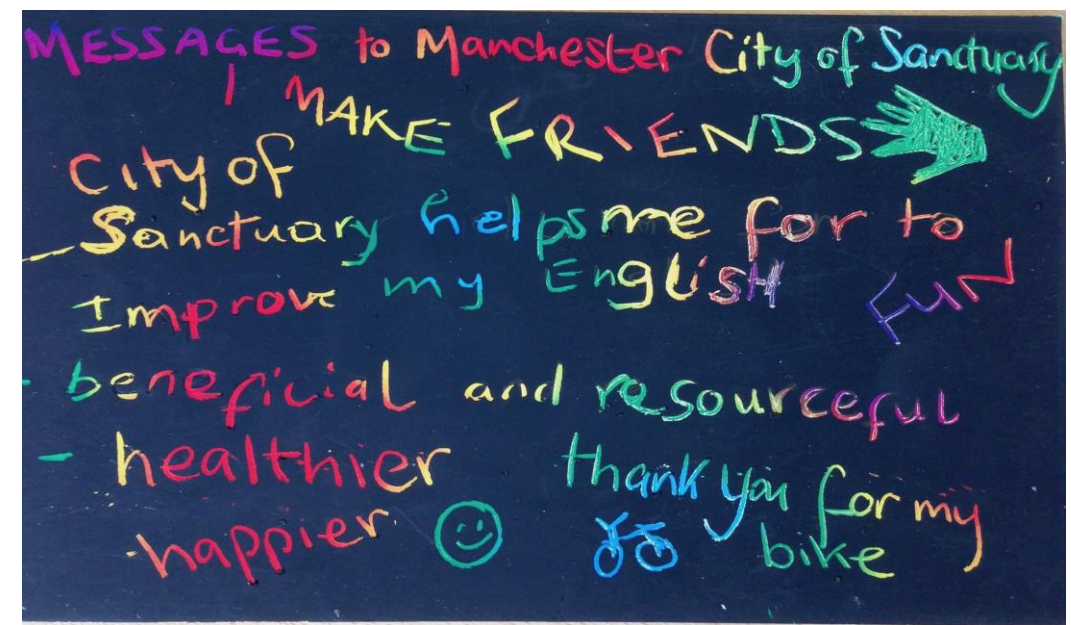 MESSAGES to Manchester City of Sanctuary
MAKE FRIENDS
City of
Sanctuary helps me for to
Improve my English
FUN
- beneficial and resourceful
- healthier
happier
thank you for my
bike